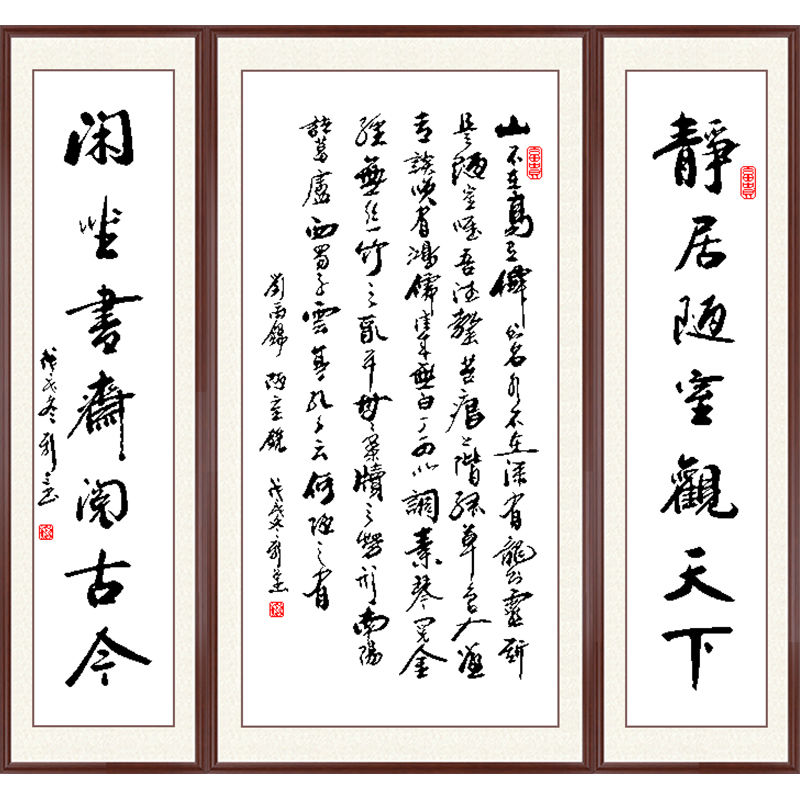 靜居陋室觀天下
富貴
山不在高有僊则名水不在深有龍则靈斯
是陋室唯吾德馨苔痕上階綠草色入簾
青談笑有鴻儒往来無白丁可以調素琴阅金
經無丝竹之亂耳無案牘之勞形南陽
諸葛廬西蜀子雲亭孔子云何陋之有
劉禹錫 陋室銘 戊戌冬
富貴
闲坐書齋阅古今
戊戌冬